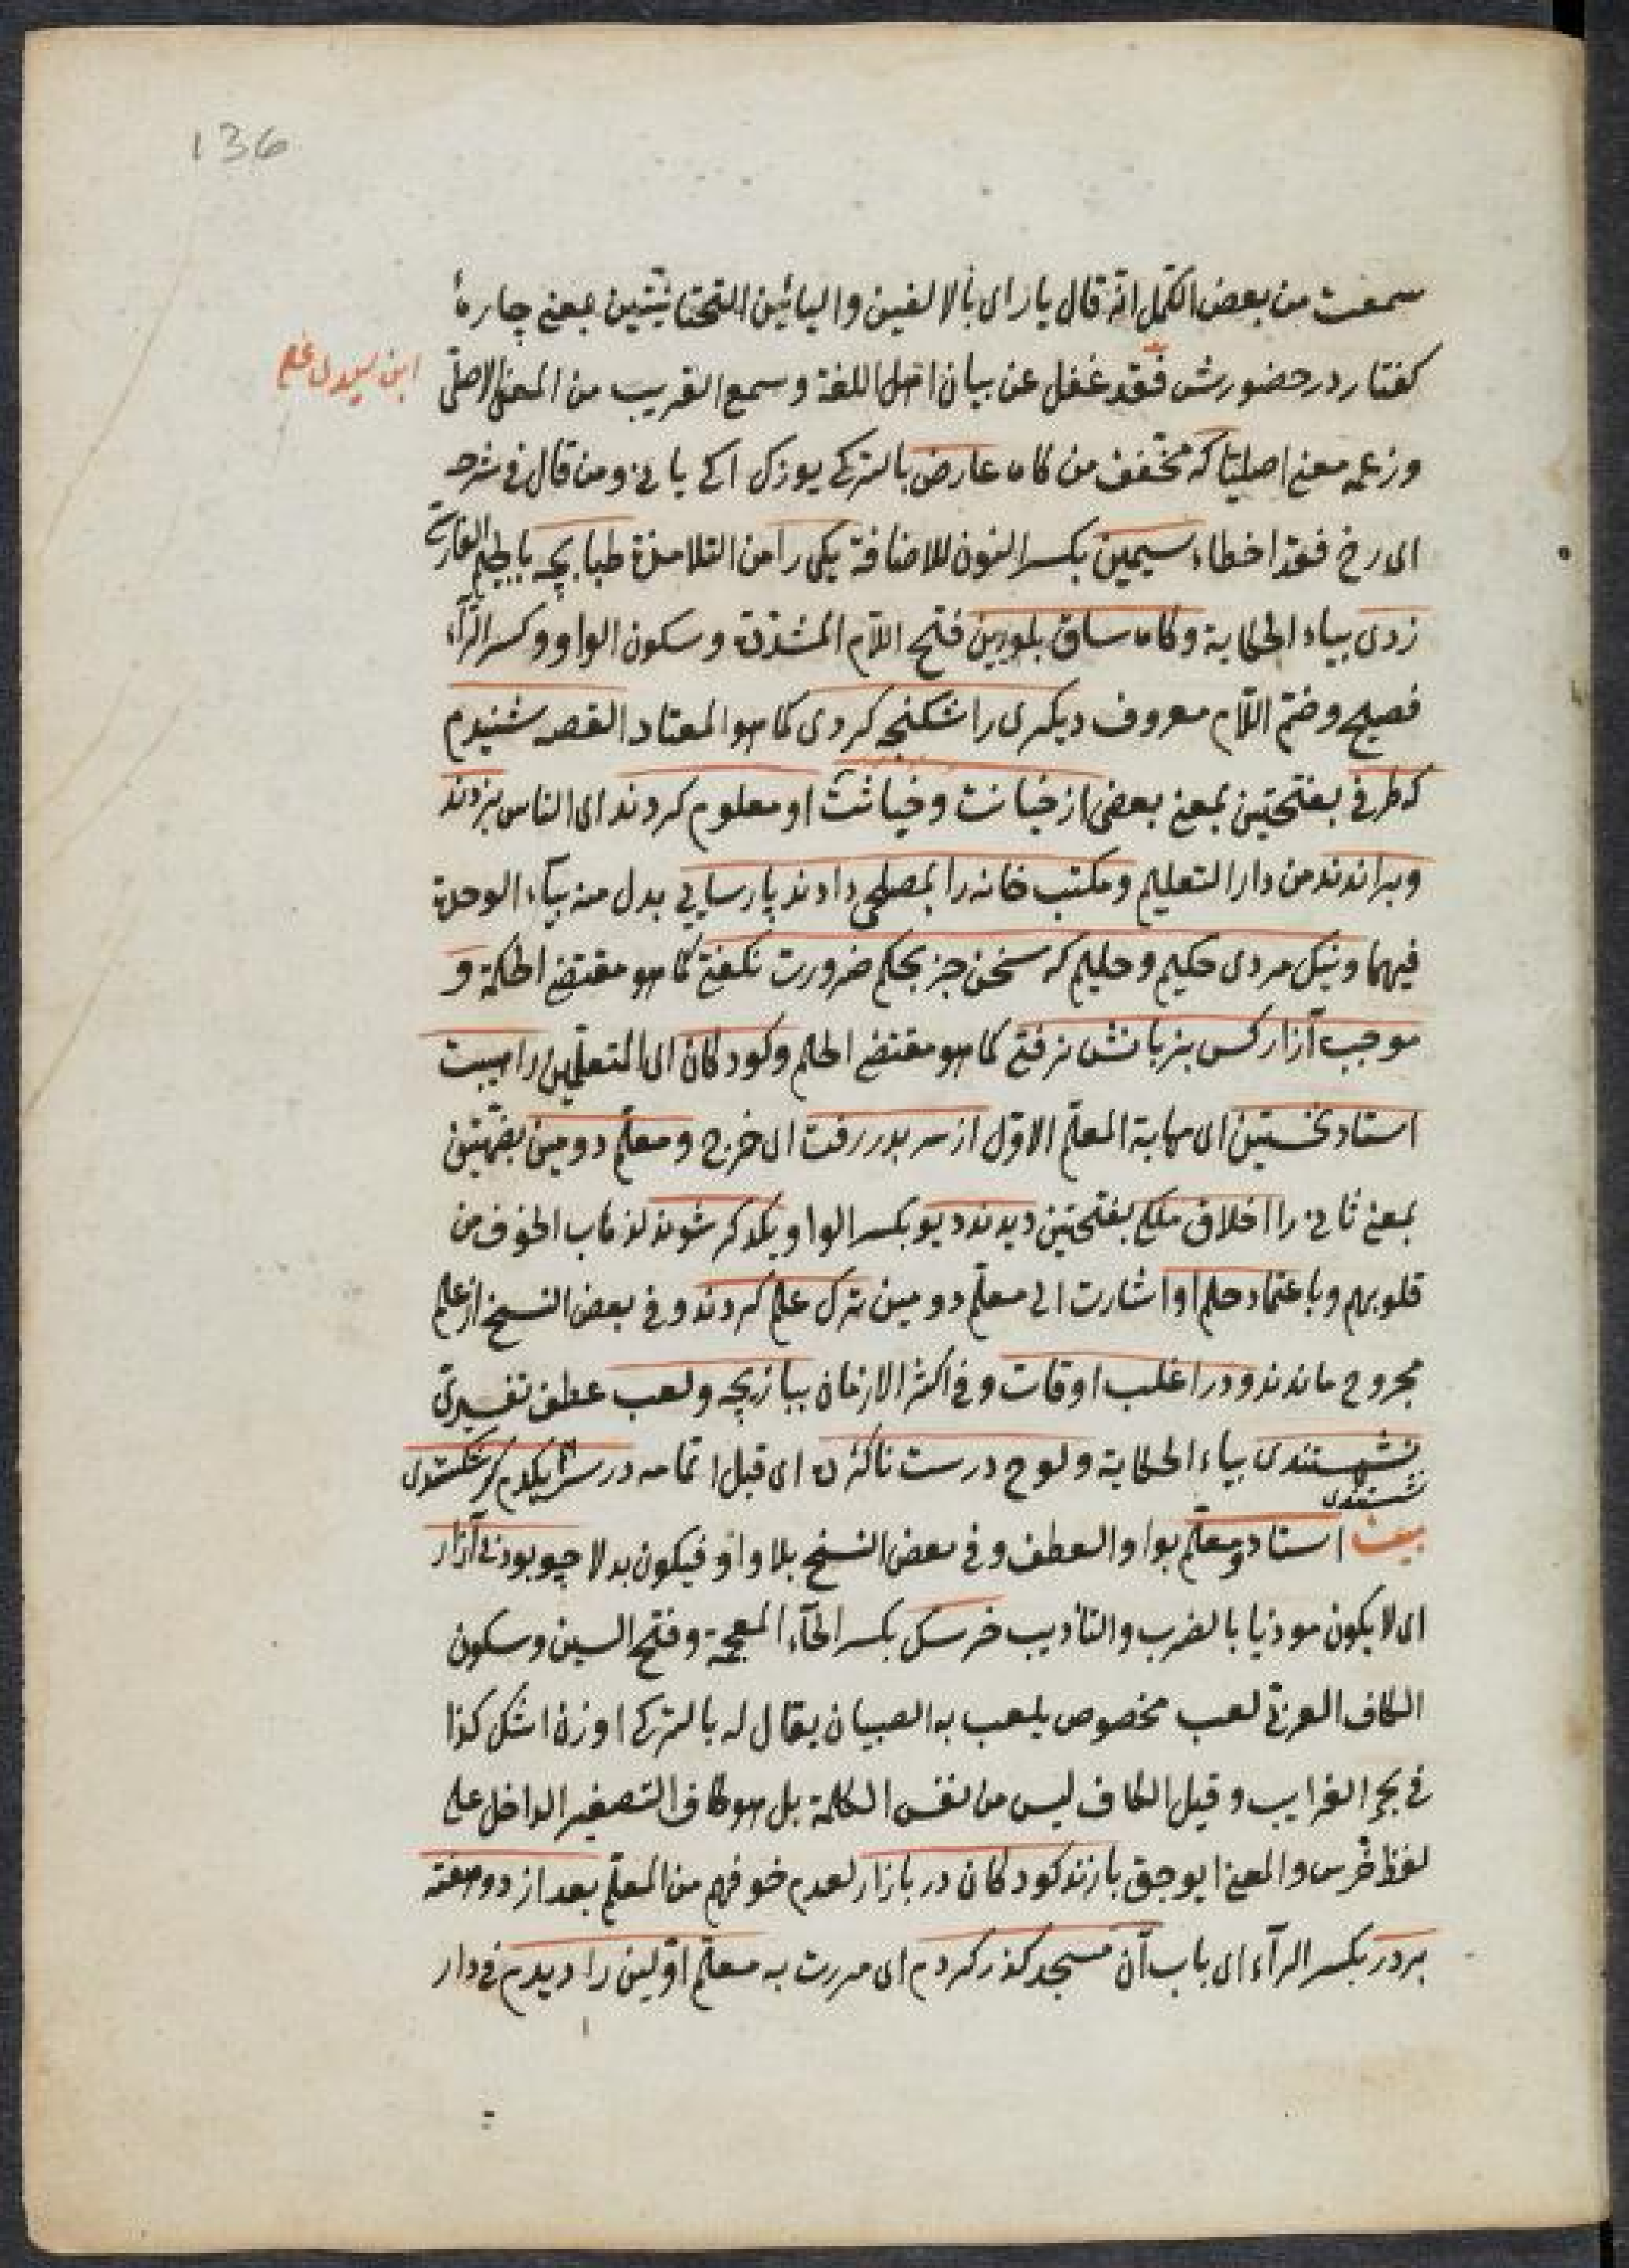 136
سمعت من بعض الكمّل انّه قال يارای بالالفين واليائين التحتانيّتين بمعنى چارۀ
كفتار در حضورش فقد غفل عن بيان اهل اللغة وسمع القريب من المعنى الاصلىّ
وزعمه معنى اصليّا كه مخفّف من كاه عارض بالتركى يوزك اكى يانى ومن قال فى شرحه
ای رخ فقد اخطاء سيمين بكسر النون للاضافة يكى را من التلامذة طبانچه بالجيم الفارسىّ
زدى بياء الحكاية وكاه ساق بلورين فتح اللّام المشدّدة وسكون الواو وكسر الرّآء
فصيح وضمّ اللّام معروف ديكرى را شكنجه كردى كما هو المعتاد القصه شنيدم
كه طرفى بفتحتين بمعنى بعضى از خيانت وخباثت او معلوم كردند ای الناس بزدند
وبراندند من دار التعليم ومكتب خانه را بمصلحى دادند پارسايى بدل منه بيآء الوحدة
فيهما ونيك مردى حكيم وحليم كه سخن جز بحكم ضرورت نكفتى كما هو مقتضى الحكمة و
موجب آزار كس بزبانش نرفتى كما هو مقتضى الحلم وكودكان ای المتعلّمين را هيبت
استاد نخستين ای مهابة المعلّم الاوّل از سر بدر رفت ای خرج ومعلّم دومين بضمّتين
بمعنى ثانى را اخلاق ملكى بفتحتين ديدند ديو بكسر الواو يكديكر شوند لذهاب الخوف من
قلوبهم وباعتماد حلم او اشارت الى معلّم دومين ترك علم كردند وفى بعض النسخ از علم
مجروح ماندند ودر اغلب اوقات وفى اكثر الازمان ببازيچه ولعب عطف تفسيرىّ
نشستندى بياء الحكاية ولوح درست ناكرده ای قبل اتمامه در سر يكديكر شكستندى
شستندى
بيت استاد ومعلّم بواو العطف وفى بعض النسخ بلا واو فيكون بدلا چو بود بى آزار
ای لا يكون موذيا بالضرب والتاديب خرسك بكسر الخآء المعجمة وفتح السين وسكون
الكاف العربىّ لعب مخصوص يلعب به الصبيان يقال له بالتركى اوزن اشك كذا
فى بحر الغرايب وقيل الكاف ليس من نفس الكلمة بل هو كاف التصغير الداخل على
لفظ خرس والمعنى ايوجق بازند كودكان در بازار لعدم خوفهم من المعلّم بعد از دو هفته
بر در بكسر الرآء ای باب آن مسجد كذر كردم ای مررت به معلّم اوّلين را ديدم فى دار